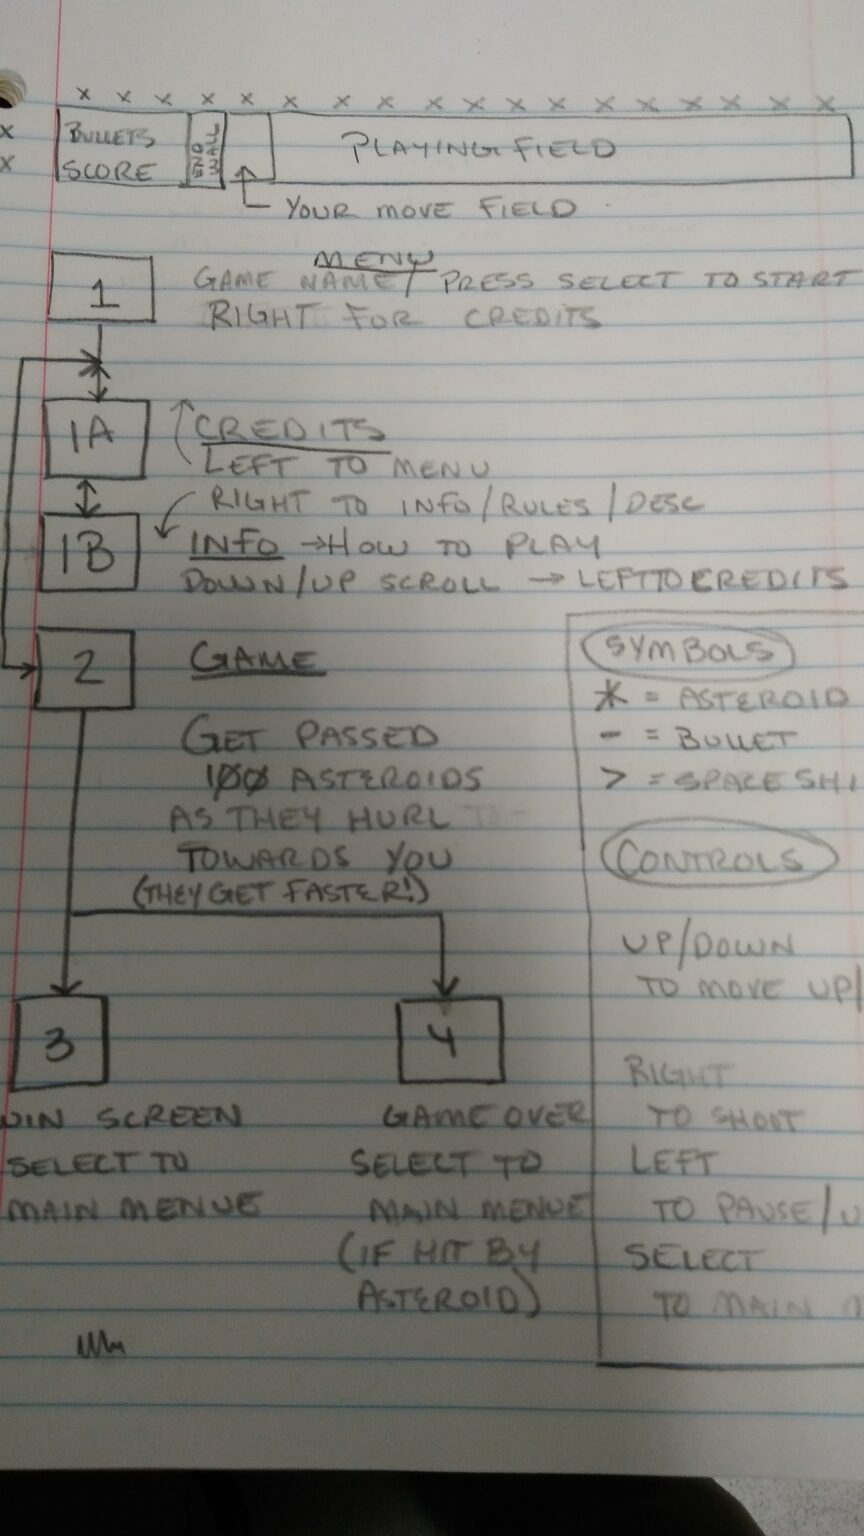 x x x x x x x x x x x x x x x x x x
x
x
BULLETS
SCORE
PLAYING FIELD
YOUR MOVE FIELD
MENU
1
GAME NAME / PRESS SELECT TO START
RIGHT FOR CREDITS
1A
CREDITS
LEFT TO MENU
RIGHT TO INFO/RULES/DESC
1B
INFO → HOW TO PLAY
DOWN/UP SCROLL → LEFT TO CREDITS
2
GAME
GET PASSED
100 ASTEROIDS
AS THEY HURL
TOWARDS YOU
(THEY GET FASTER!)
SYMBOLS
* = ASTEROID
- = BULLET
> = SPACE SHI
CONTROLS
UP/DOWN
TO MOVE UP/
RIGHT
TO SHOOT
LEFT
TO PAUSE/U
SELECT
TO MAIN
3
WIN SCREEN
SELECT TO
MAIN MENUE
4
GAME OVER
SELECT TO
MAIN MENUE
(IF HIT BY
ASTEROID)